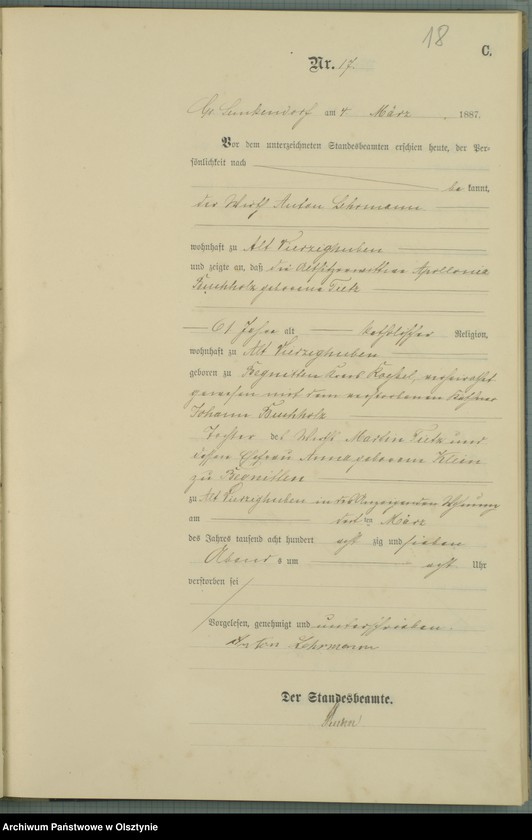 18
C.
Nr. 17.
am 4 März 1887.
Vor dem unterzeichneten Standesbeamten erschien heute, der Per-
sönlichkeit nach
be kannt,
der Wirth Anton Lehrmann
wohnhaft zu Alt Vierzighuben
und zeigte an, daß die Altsitzerwittwe Apollonia
Buchholz geborene Tietz
61 Jahre alt katholischer Religion,
wohnhaft zu Alt Vierzighuben
geboren zu Begnitten Kreis verheirathet
gewesen mit dem verstorbenen
Johann Buchholz
Tochter des Wirth Martin Tietz und
dessen Ehefrau Anna geborenen Klein
zu Begnitten
zu Alt Vierzighuben in des Anzeigenden Wohnung
am ten März
des Jahres tausend acht hundert acht zig und sieben
Abend s um acht Uhr
verstorben sei
Vorgelesen, genehmigt und unterschrieben
Anton Lehrmann
Der Standesbeamte.
Archiwum Państwowe w Olsztynie